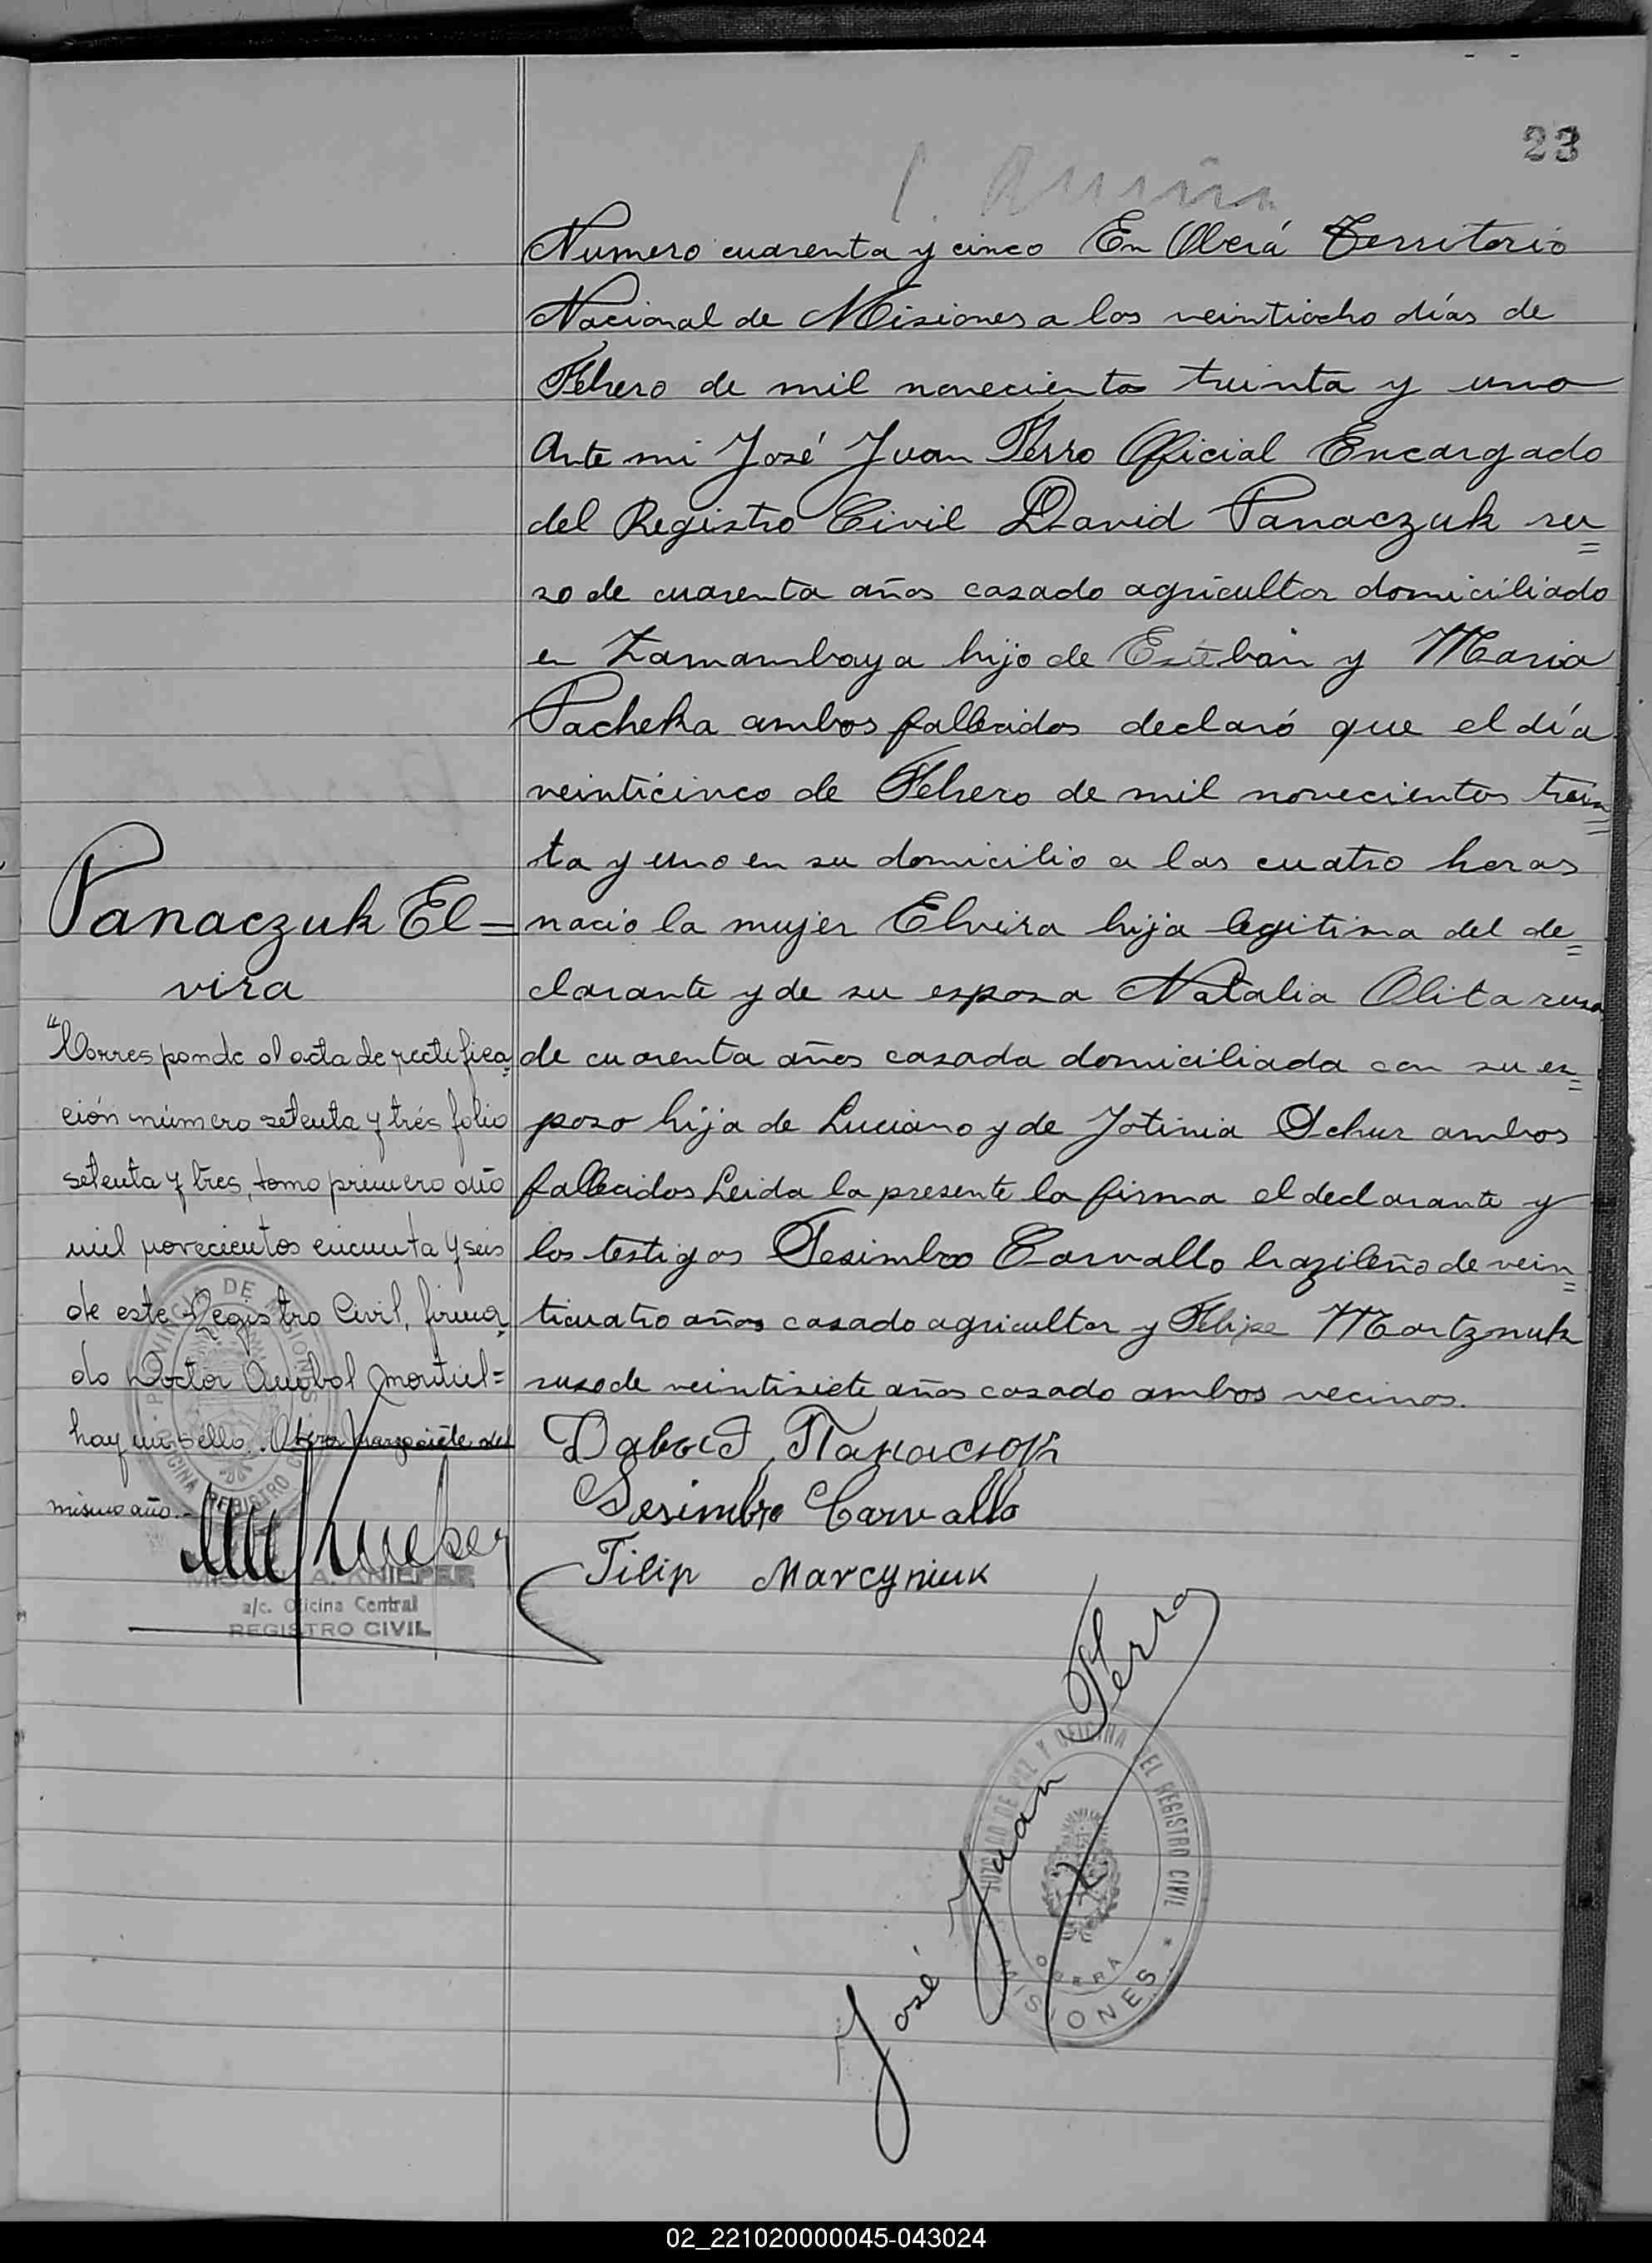 23
Numero cuarenta y cinco En Oberá Territorio
Nacional de Misiones a los veintiocho días de
Febrero de mil novecientos treinta y uno
Ante mi José Juan Ferro Oficial Encargado
del Registro Civil David Panaczuk ru=
so de cuarenta años casado agricultor domiciliado
en Zamambaya hijo de Esteban y Maria
Pacheka ambos fallecidos declaró que el día
veinticinco de Febrero de mil novecientos trein=
ta y uno en su domicilio a las cuatro horas
nació la mujer Elvira hija legitima del de=
clarante y de su esposa Natalia Olita rusa
de cuarenta años casada domiciliada con su es=
poso hija de Luciano y de Jotinia Schur ambos
fallecidos Leida la presente la firma el declarante y
los testigos Sesimbro Carvallo brazileño de vein=
ticuatro años casado agricultor y Felipe Martznuk
ruso de veintisiete años casado ambos vecinos.
Sesimbro Carvallo
Filip Marcyniuk
José Juan Ferro
JUZGADO DE PAZ Y OFICINA DEL REGISTRO CIVIL
OBERA
MISIONES
Panaczuk El=
vira
"Corresponde al acta de rectifica=
ción número setenta y trés folio
setenta y tres, tomo primero año
mil novecientos cincuenta y seis
de este Registro Civil, firma=
do Doctor Anibal Montiel=
hay un sello. Obera marzo siete del
mismo año.-
PROVINCIA DE MISIONES
OFICINA REGISTRO CIVIL
MIGUEL A. KNIEPER
a/c. Oficina Central
REGISTRO CIVIL
02_221020000045-043024